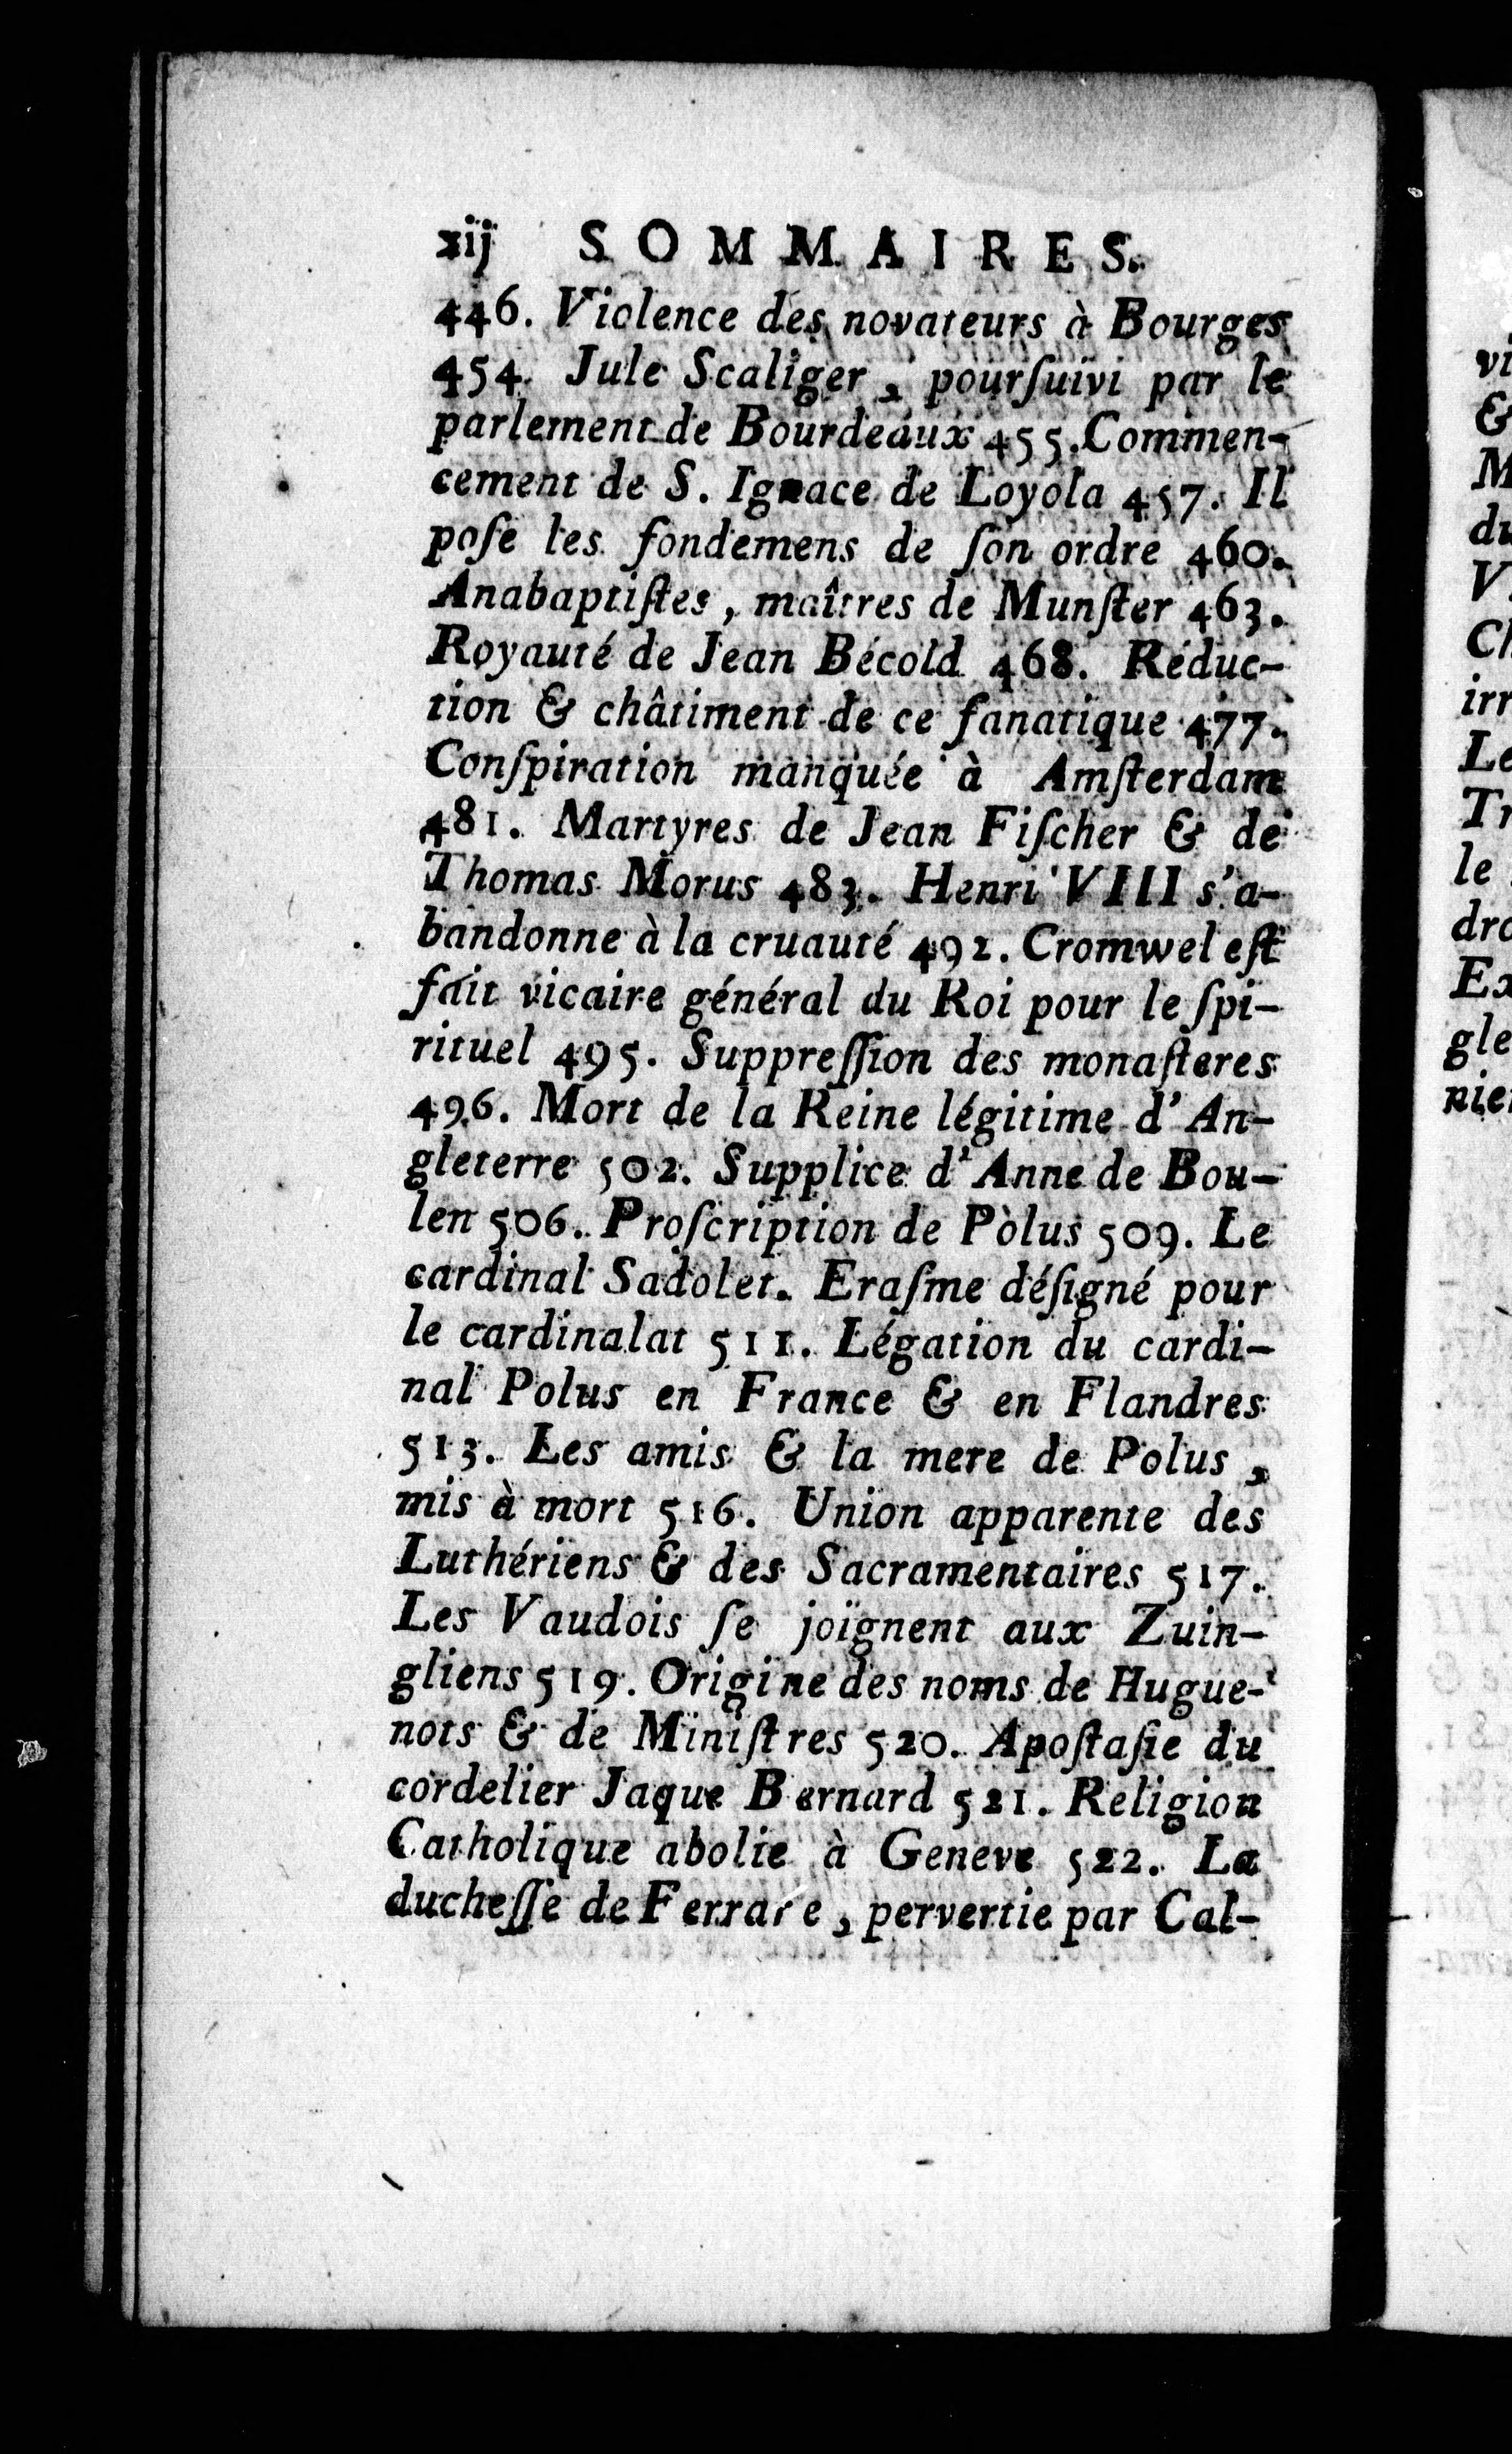 xij SOMMAIRES.
446. Violence des novateurs à Bourges
454. Jule Scaliger, pourſuivi par le
parlement de Bourdeaux 455. Commen-
cement de S. Ignace de Loyola 457. Il
poſe les fondemens de ſon ordre 460.
Anabaptiſtes, maîtres de Munſter 463.
Royauté de Jean Bécold 468. Réduc-
tion & châtiment de ce fanatique 477.
Conſpiration manquée à Amſterdam
481. Martyres de Jean Fiſcher & de
Thomas Morus 483. Henri VIII s'a-
bandonne à la cruauté 492. Cromwel eſt
fait vicaire général du Roi pour le ſpi-
rituel 495. Suppreſſion des monaſteres
496. Mort de la Reine légitime d'An-
gleterre 502. Supplice d'Anne de Bou-
len 506. Proſcription de Polus 509. Le
cardinal Sadolet. Eraſme déſigné pour
le cardinalat 511. Légation du cardi-
nal Polus en France & en Flandres
513. Les amis & la mere de Polus,
mis à mort 516. Union apparente des
Luthériens & des Sacramentaires 517.
Les Vaudois ſe joignent aux Zuin-
gliens 519. Origine des noms de Hugue-
nots & de Miniſtres 520. Apoſtaſie du
cordelier Jaque Bernard 521. Religion
Catholique abolie à Geneve 522. La
ducheſſe de Ferrare, pervertie par Cal-
vi
&
M
du
V
Ch
irr
Le
Tr
le
dro
Ex
gle
nie